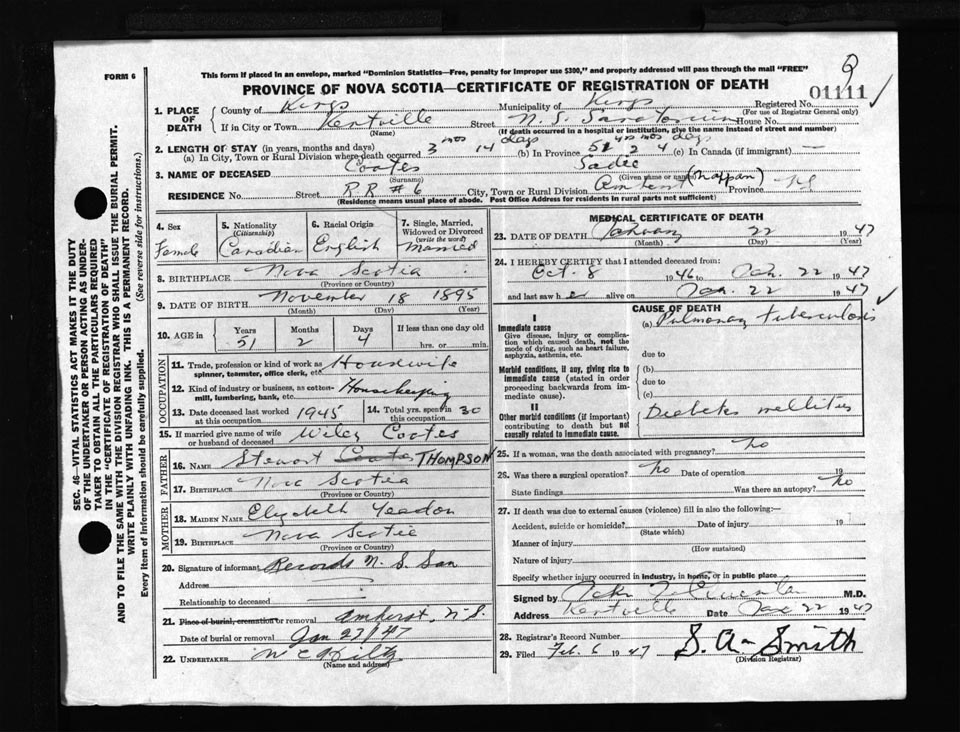 FORM 6
This form if placed in an envelope, marked "Dominion Statistics—Free, penalty for improper use $300," and properly addressed will pass through the mail "FREE"
PROVINCE OF NOVA SCOTIA—CERTIFICATE OF REGISTRATION OF DEATH
01111
1. PLACE OF DEATH County of Kings Municipality of Kings Registered No.
(For use of Registrar General only)
If in City or Town Kentville Street N. S. Sanatorium House No.
(Name) (If death occurred in a hospital or institution, give the name instead of street and number)
2. LENGTH OF STAY (in years, months and days)
(a) In City, Town or Rural Division where death occurred 3 mos 14 days (b) In Province 51 yrs 2 mos 4 days (c) In Canada (if immigrant) —
3. NAME OF DECEASED Coates Sadie
(Surname) (Given name or names)
RESIDENCE No. Street RR #6 City, Town or Rural Division Amherst (Nappan) Province NS
(Residence means usual place of abode. Post Office Address for residents in rural parts not sufficient)
4. Sex Female
5. Nationality (Citizenship) Canadian
6. Racial Origin English
7. Single, Married, Widowed or Divorced (write the word) Married
8. BIRTHPLACE Nova Scotia
(Province or Country)
9. DATE OF BIRTH November 18 1895
(Month) (Day) (Year)
10. AGE in Years 51 Months 2 Days 4 If less than one day old hrs. or min.
OCCUPATION
11. Trade, profession or kind of work as spinner, teamster, office clerk, etc. Housewife
12. Kind of industry or business, as cotton-mill, lumbering, bank, etc. Housekeeping
13. Date deceased last worked at this occupation 1945 14. Total yrs. spent in this occupation 30
15. If married give name of wife or husband of deceased Wiley Coates
FATHER
16. NAME Stewart Coates THOMPSON
17. BIRTHPLACE Nova Scotia
(Province or Country)
MOTHER
18. MAIDEN NAME Elizabeth Yeadon
19. BIRTHPLACE Nova Scotia
(Province or Country)
20. Signature of informant Records N. S. San
Address
Relationship to deceased
21. Place of burial, cremation or removal Amherst, N.S.
Date of burial or removal Jan 27/47
22. UNDERTAKER
(Name and address)
MEDICAL CERTIFICATE OF DEATH
23. DATE OF DEATH January 22 1947
(Month) (Day) (Year)
24. I HEREBY CERTIFY that I attended deceased from:
Oct. 8 1946 to Jan. 22 1947
and last saw her alive on Jan. 22 1947
CAUSE OF DEATH
I
Immediate cause
Give disease, injury or complication which caused death, not the mode of dying, such as heart failure, asphyxia, asthenia, etc.
(a) Pulmonary tuberculosis
due to
Morbid conditions, if any, giving rise to immediate cause (stated in order proceeding backwards from immediate cause).
(b)
due to
(c)
II
Other morbid conditions (if important) contributing to death but not causally related to immediate cause.
Diabetes mellitus
25. If a woman, was the death associated with pregnancy? no
26. Was there a surgical operation? no Date of operation 19
State findings Was there an autopsy? no
27. If death was due to external causes (violence) fill in also the following:—
Accident, suicide or homicide? Date of injury 19
(State which)
Manner of injury
(How sustained)
Nature of injury
Specify whether injury occurred in industry, in home, or in public place
Signed by M.D.
Address Kentville Date Jan 22 1947
28. Registrar's Record Number
29. Filed Feb. 6 1947 S. A. Smith
(Division Registrar)
SEC. 46—VITAL STATISTICS ACT MAKES IT THE DUTY
OF THE UNDERTAKER OR PERSON ACTING AS UNDERTAKER TO OBTAIN ALL THE PARTICULARS REQUIRED
IN THE "CERTIFICATE OF REGISTRATION OF DEATH"
AND TO FILE THE SAME WITH THE DIVISION REGISTRAR WHO SHALL ISSUE THE BURIAL PERMIT.
WRITE PLAINLY WITH UNFADING INK. THIS IS A PERMANENT RECORD.
Every item of information should be carefully supplied. (See reverse side for instructions.)